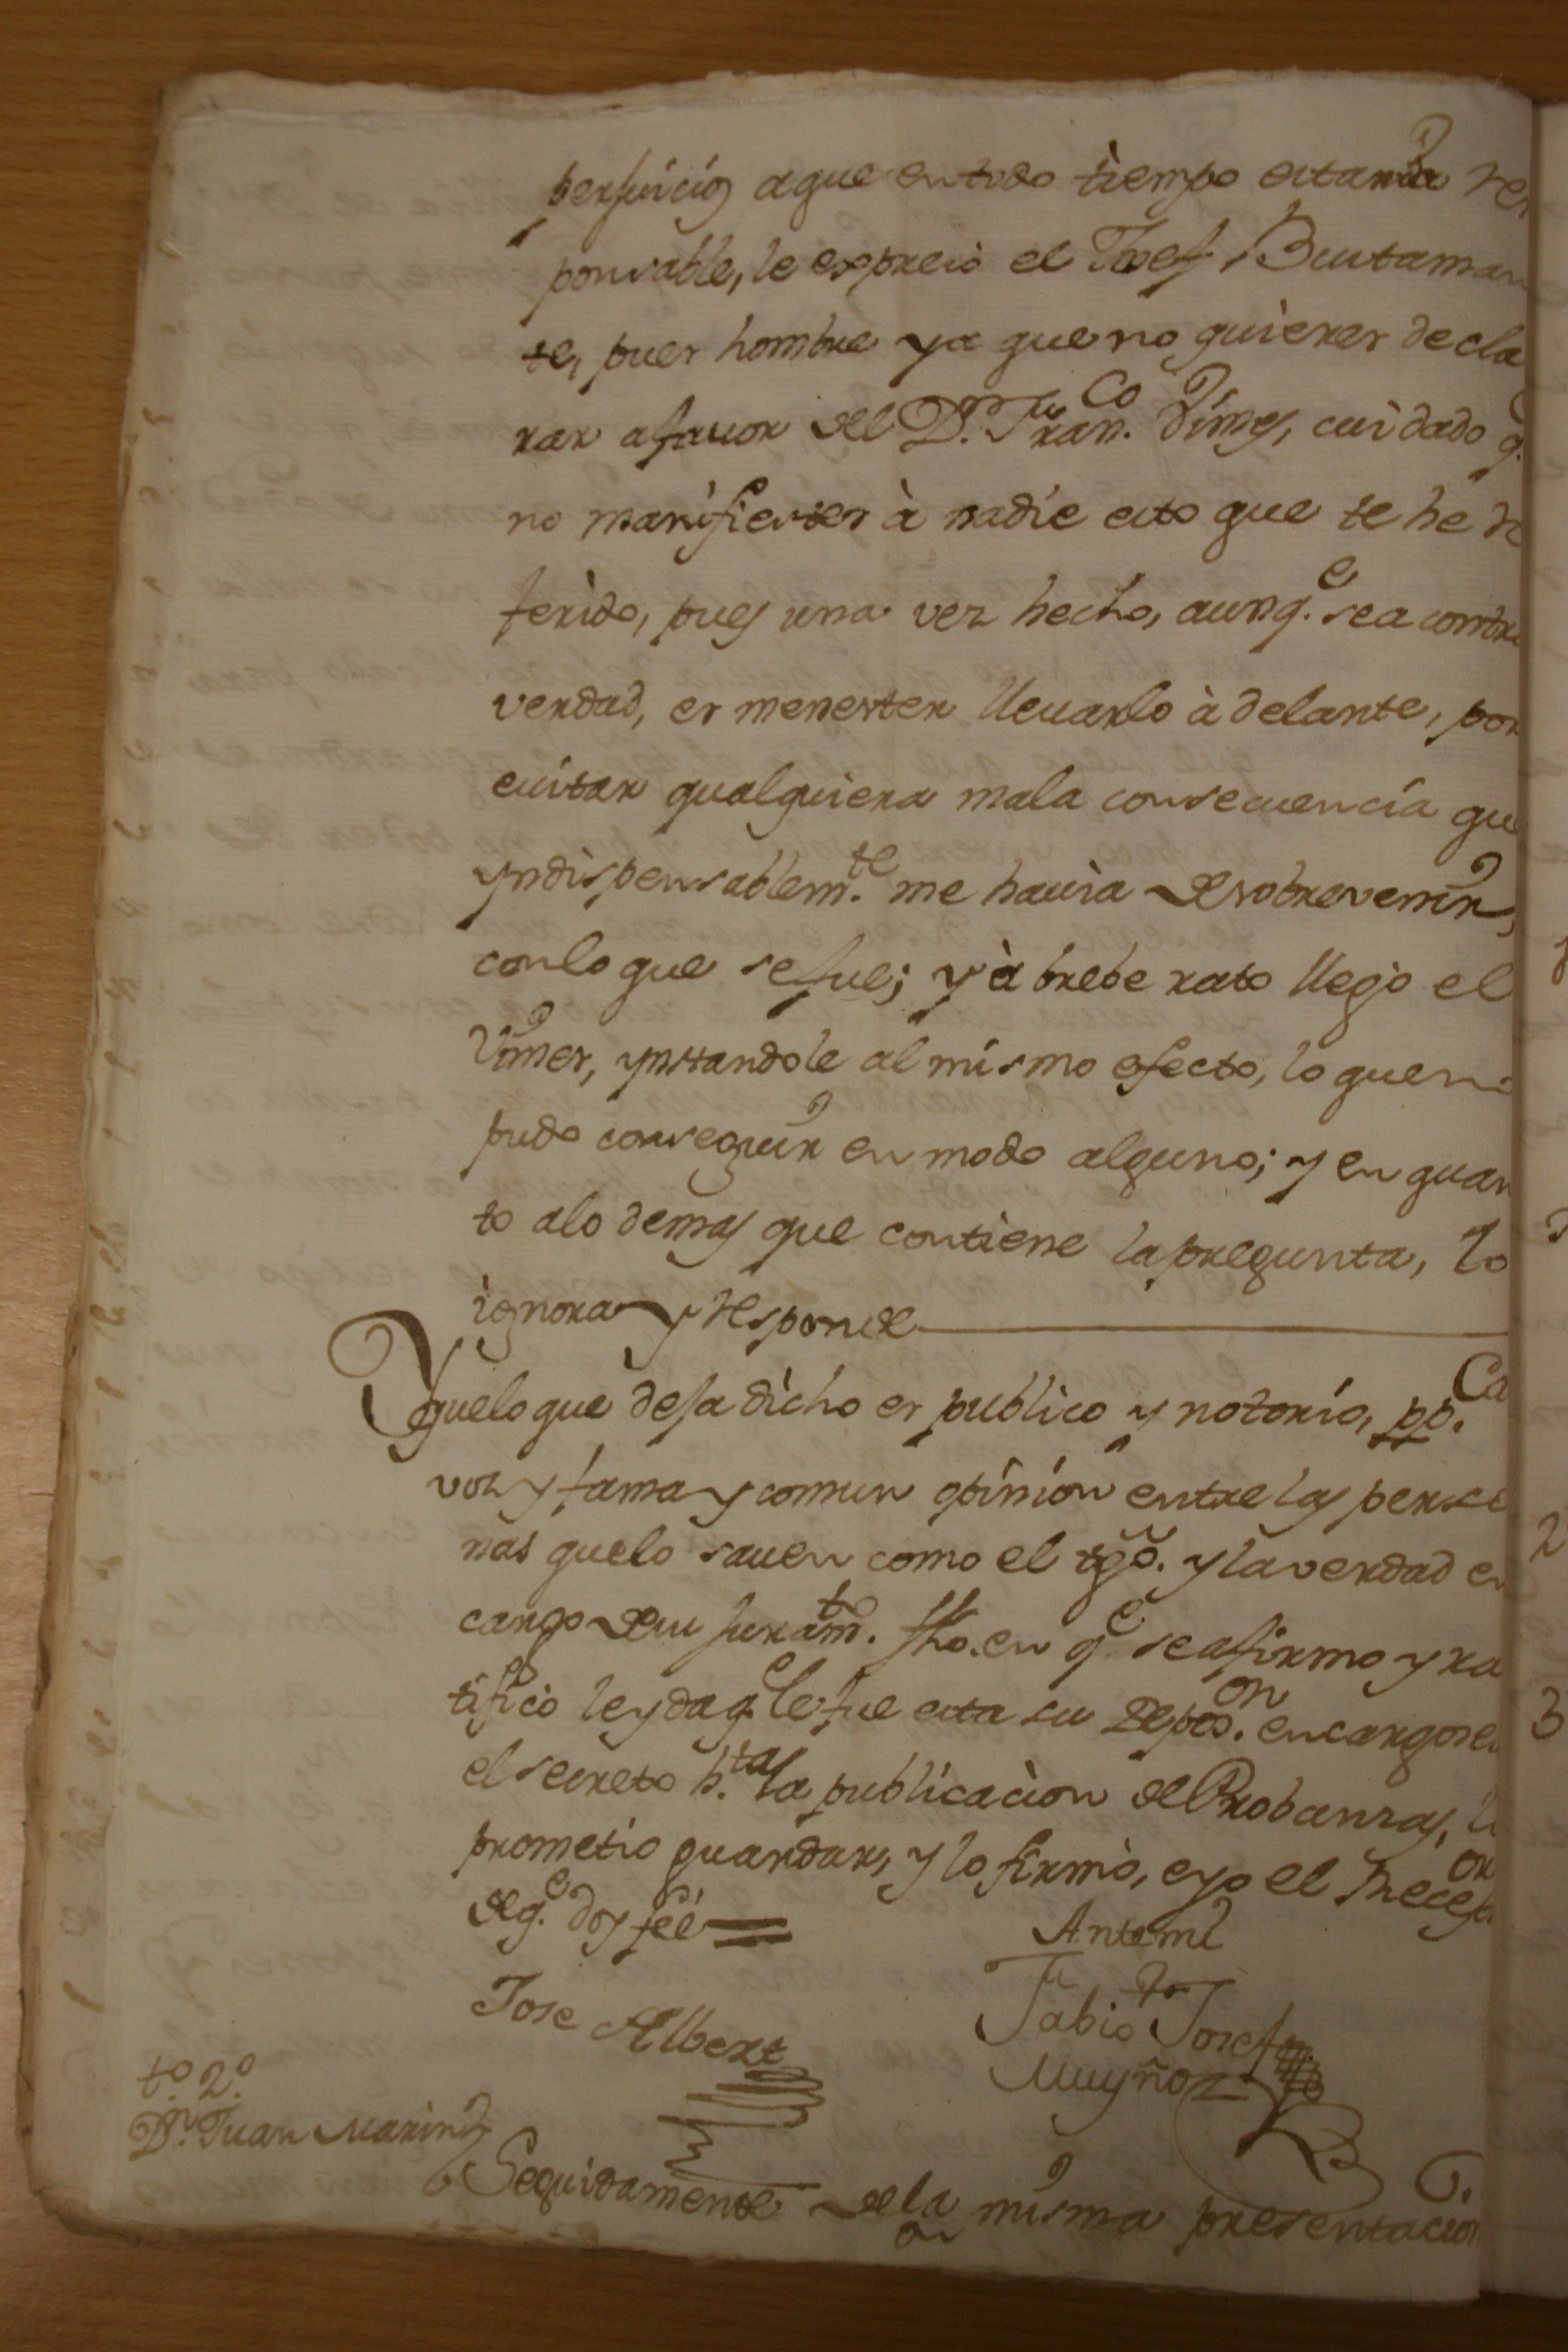 perjuicio, aque entodo tiempo estaria res
ponsable, le expresò el Josef Bustaman
te, pues hombre ya que no quieres decla
rar afavor del D.n Fran.co Vines, cuidado q.
no manifiestes à nadie esto que te he re
ferido, pues una vez hecho, aunq.e sea contra
verdad, es menester llevarlo à delante, por
evitar qualquiera mala consecuencia que
yndispensablem.te me havia de sobrevenir,
conlo que sefue; y à brebe rato llegò el
Vines, ynstandole al mismo efecto, lo que no
pudo conseguir en modo alguno; y en quan
to alo demas que contiene lapregunta, lo
ignora y responde
Yquelo que deja dicho es publico y notorio, pp.ca
voz y fama y comun opinion entre las perso
nas quelo saven como el tgo. y laverdad en
cargo desu juram.to fho. en q.e seafirmo y ra
tificò leyda q.e lefue esta su depos.on encargose
el secreto h.ta la publicacion de Probanzas, lo
prometio guardar, y lo firmò, eyo el Recep.or
deq.e doy feé =
Antemi
Jose Albert
Fabio Josef
Muyñoz
t.o 2.o
D.n Juan Marin
Seguidamente dela misma presentacion